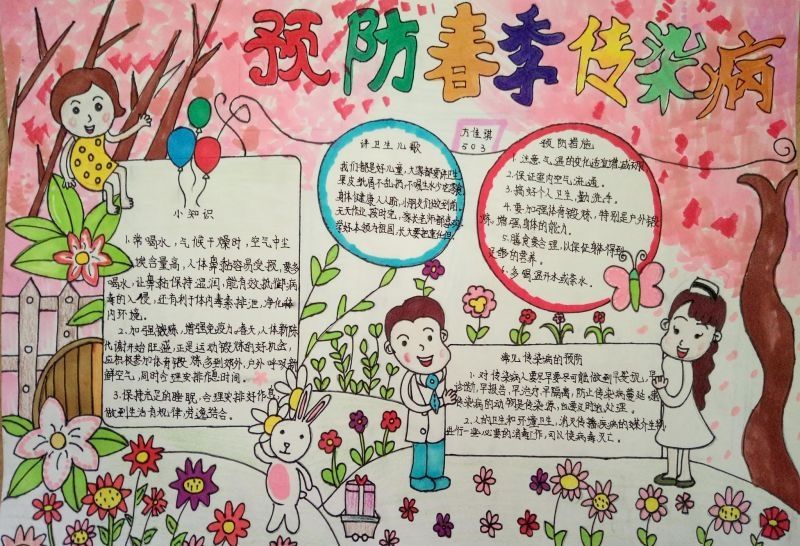 预防春季传染病
小知识
1.常喝水,气候干燥时,空气中尘
埃含量高,人体鼻黏容易受损,要多
喝水,让鼻黏保持湿润,能有效抵御病
毒的入侵,还有利于体内毒素排泄,净化体
内环境。
2.加强锻炼,增强免疫力。春天,人体新陈
代谢开始旺盛,正是运动锻炼的好机会,
应积极参加体育锻炼,多到郊外、户外呼吸新
鲜空气,同时合理安排作息时间。
3.保持充足的睡眠,合理安排好作息,
做到生活有规律,劳逸结合。
讲卫生儿歌
我们都是好儿童,大家都要讲卫生
果皮纸屑不乱扔,不喝生水少吃零食
身体健康人人夸,小朋友们做到前
长大要把重任担。
方佳琪
503
预防措施
1.注意气温的变化适当增减衣服
2.保证室内空气流通。
3.搞好个人卫生,勤洗手。
4.要加强体育锻炼,特别是户外锻
炼,增强身体的能力。
5.膳食要合理,以保证身体得到
足够的营养。
6.多喝温开水或茶水。
常见传染病的预防
1.对传染病人要尽早要尽可能做到早发现,早
诊断,早报告,早治疗,早隔离,防止传染病蔓延
传染病的动物是传染源,也要及时处理。
2.人的卫生和环境卫生,消灭传播疾病的媒介生物,
进行一些必要的消毒工作,可以使病毒灭亡。